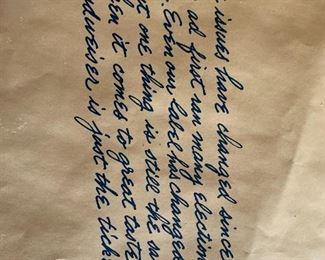 issues have changed since
ad first ran many election
. Even our label has changed
t one thing is still the sa
en it comes to great taste
udweiser is just the tick